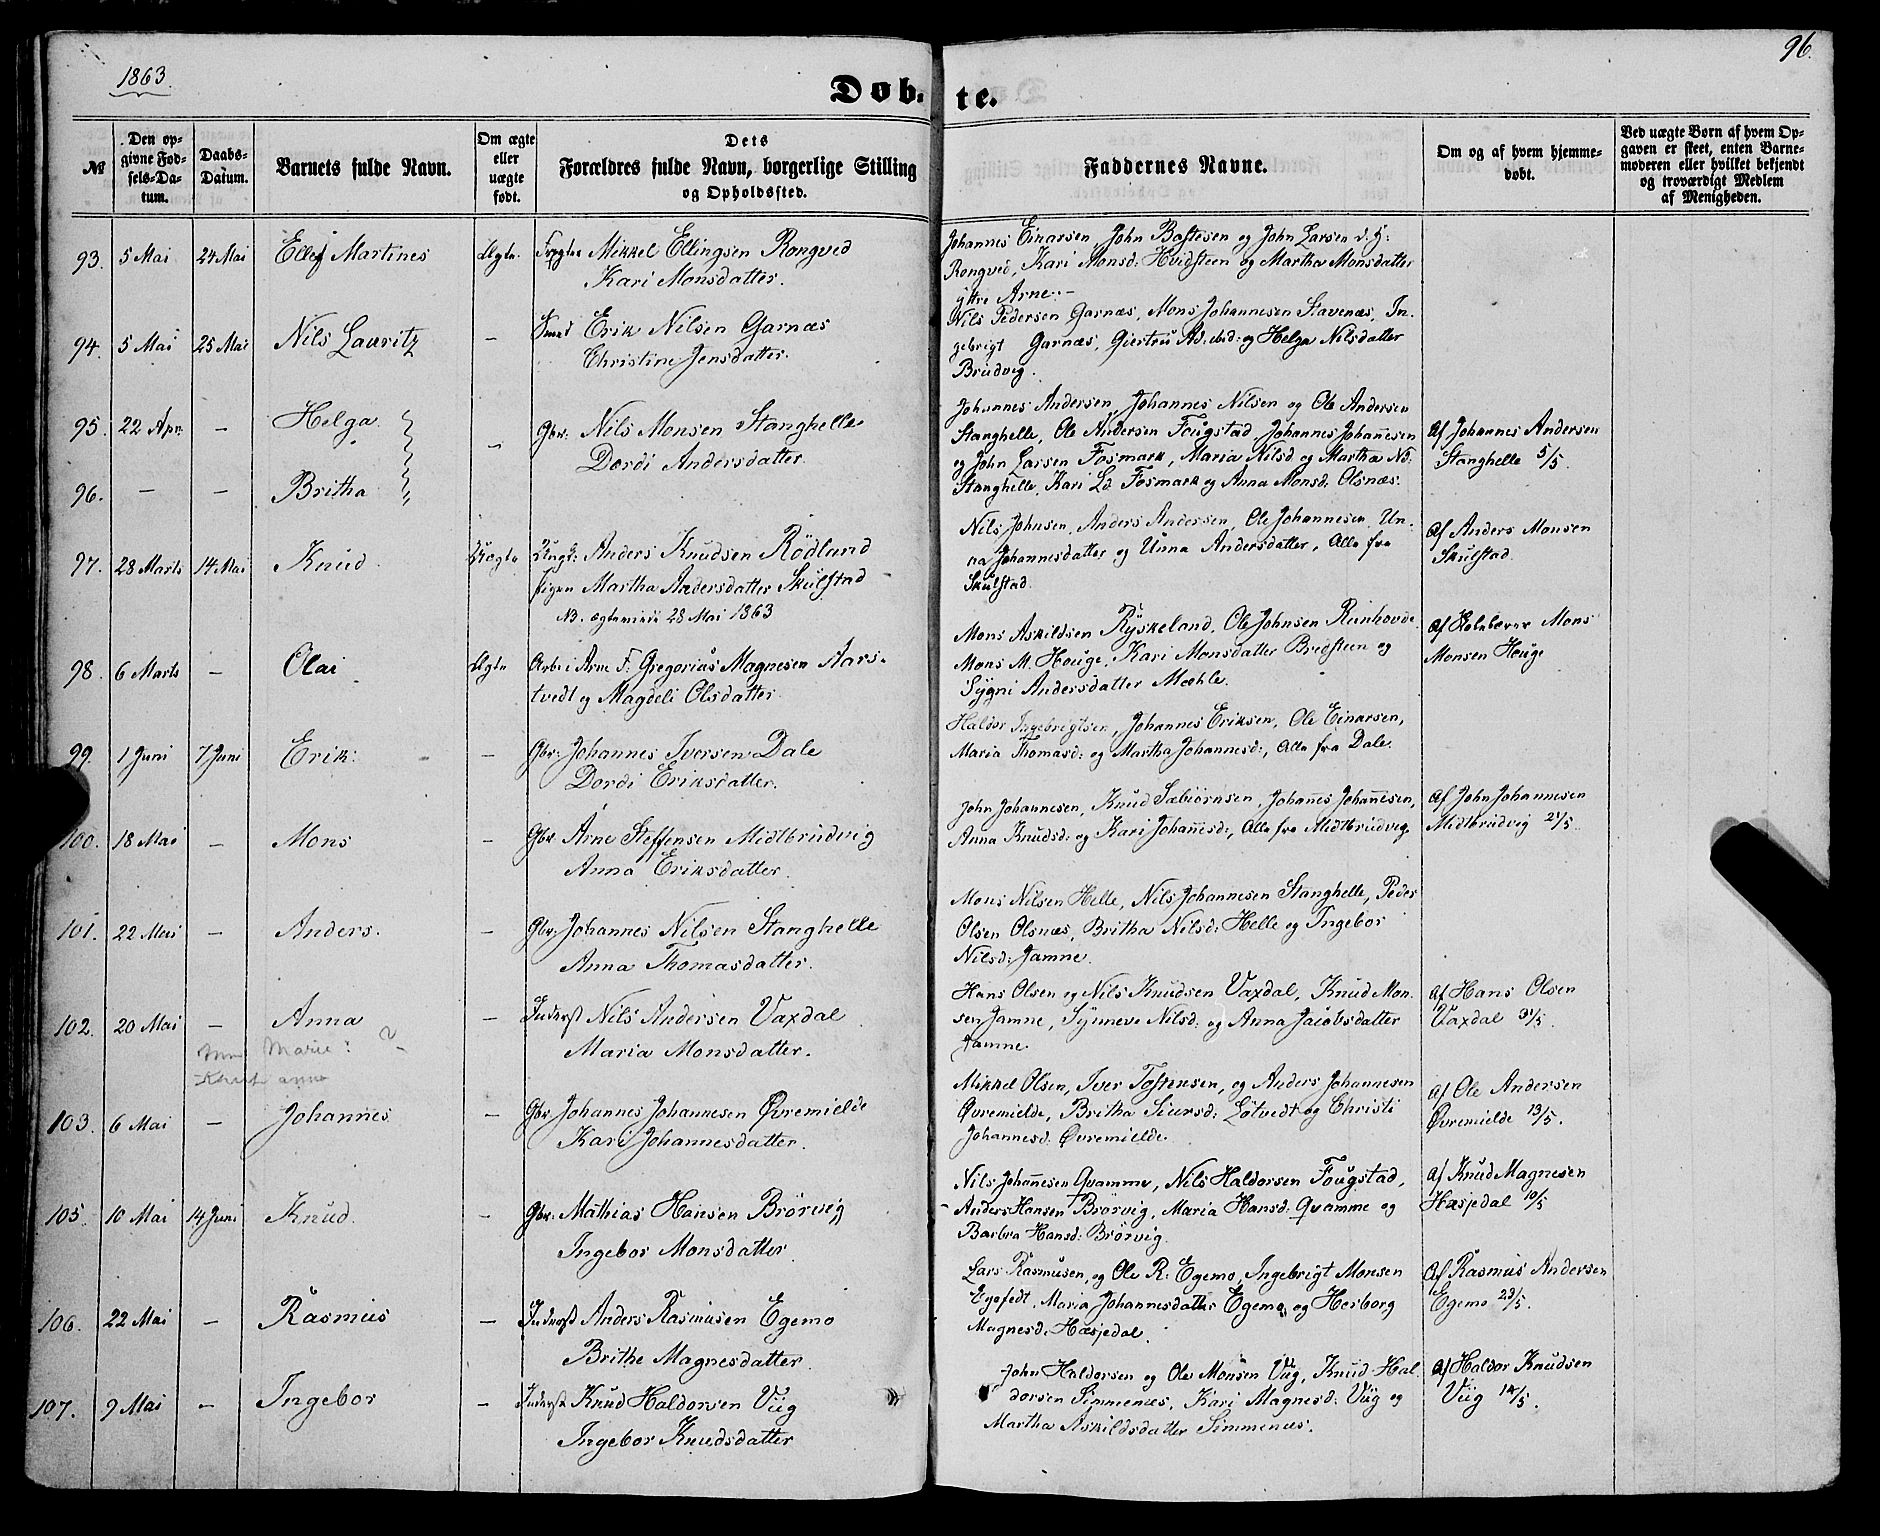 1863.
96.
Døb- te.
№
Den opgivne Fødsels-Datum.
Daabs-Datum.
Barnets fulde Navn.
Om ægte eller uægte født.
Dets
Forældres fulde Navn, borgerlige Stilling
og Opholdssted.
Faddernes Navne.
Om og af hvem hjemmedøbt.
Ved uægte Børn af hvem Opgaven er skeet, enten Barnemoderen eller hvilket bekjendt og troværdigt Medlem af Menigheden.
93. 5 Mai 24 Mai Ellef Martines Ægte. Mikkel Ellingsen Rongved
Kari Monsdatter.
Johannes Einarsen, John Bastesen og John Larsen
Rongved, Kari Monsd: Hvidsteen og Martha Monsdatter
yttre Arne.
94. 5 Mai 25 Mai Nils Lauritz – Smed Erik Nilsen Garnæs
Christine Jensdatter.
Nils Pedersen Garnæs, Mons Johannesen Stavenæs, In-
gebrigt Garnæs, Giertru og Helga Nilsdatter
Brudvig.
95. 22 Apr: – Helga – Gbr: Nils Monsen Stanghelle
Dordi Andersdatter.
96. – – Britha
Johannes Andersen, Johannes Nilsen og Ole Andersen
Stanghelle, Ole Andersen Fougstad, Johannes Johanesen
og John Larsen Fosmark, Maria Nilsd og Martha Nd:
Stanghelle, Kari Ld. Fosmark og Anna Monsd: Olsnæs.
Af Johannes Andersen
Stanghelle 5/5.
97. 28 Marts 14 Mai Knud. Uægte Ungk: Anders Knudsen Rödland
Pigen Martha Andersdatter Skulstad
NB. ægteviede 28 Mai 1863
Nils Johnsen, Anders Andersen, Ole Johannesen, Un-
na Johannesdatter og Unna Andersdatter, Alle fra
Skulstad.
Af Anders Monsen
Skulstad
98. 6 Marts – Olai Ægte Arbr i Arne F. Gregorius Magnesen Aars-
tvedt og Magdeli Olsdatter.
Mons Askildsen Ryskeland, Ole Johnsen Reinhovde
Mons M. Houge, Kari Monsdatter Bredsteen og
Sygni Andersdatter Mæhle.
Af Mons
Monsen Houge
99. 1 Juni 7 Juni Erik: – Gbr: Johannes Iversen Dale
Dordi Eriksdatter.
Haldor Ingebrigtsen, Johannes Eriksen, Ole Einarsen,
Maria Thomasd: og Martha Johannesd:, Alle fra Dale.
100. 18 Mai – Mons – Gbr Arne Steffensen Midtbrudvig
Anna Eriksdatter.
John Johannesen, Knud Sæbiörnsen, Johanes Johanesen,
Anna Knudsd: og Kari Johanesd:, Alle fra Midtbrudvig.
Af John Johannesen
Midtbrudvig 21/5.
101. 22 Mai – Anders. – Gbr: Johannes Nilsen Stanghelle
Anna Thomasdatter.
Mons Nilsen Helle, Nils Johannesen Stanghelle, Peder
Olsen Olsnæs, Britha Nilsd: Helle og Ingebor
Nilsd: Jamne.
102. 20 Mai – Anna – Inderst Nils Andersen Vaxdal
Marie: ?
anna
Maria Monsdatter.
Hans Olsen og Nils Knudsen Vaxdal, Knud Mon-
sen Jamne, Synneve Nilsd: og Anna Jacobsdatter
Jamne.
Af Hans Olsen
Vaxdal 31/5.
103. 6 Mai – Johannes – Gbr Johannes Johannesen Øvremielde
Kari Johannesdatter.
Mikkel Olsen, Iver Tostensen, og Anders Johannesen
Øvremielde, Britha Siursd: Lötvedt og Christi
Johannesd: Øvremielde.
Af Ole Andersen
Øvremielde 13/5.
105. 10 Mai 14 Juni Knud. – Gbr: Mathias Hansen Brörvig
Ingebor Monsdatter
Nils Johanesen Qvamme, Nils Haldorsen Fougstad,
Anders Hansen Brörvig, Maria Hansd: Qvamme og
Barbra Hansd: Brörvig.
Af Knud Magnesen
Hæsjedal 10/5
106. 22 Mai – Rasmus – Inderst Anders Rasmusen Egemo
Brithe Magnesdatter.
Lars Rasmusen, og Ole R: Egemo, Ingebrigt Monsen
Maria Johannesdatter Egemo, og Herborg
Magnesd. Hæsjedal.
Af Rasmus Andersen
Egemo 23/5.
107. 9 Mai – Ingebor – Inderst Knud Haldorsen Viig
Ingebor Knudsdatter
John Haldorsen og Ole Monsen Viig, Knud Hal-
dorsen Simmenæs, Kari Magnesd: Viig og
Martha Askildsdatter Simmenæs.
Af Haldor Knudsen
Viig 14/5.